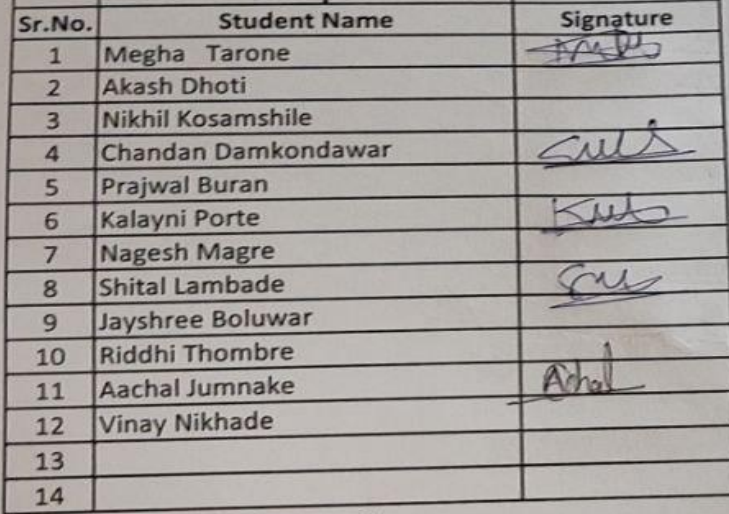 Sr.No. Student Name Signature
1 Megha Tarone
2 Akash Dhoti
3 Nikhil Kosamshile
4 Chandan Damkondawar
5 Prajwal Buran
6 Kalayni Porte
7 Nagesh Magre
8 Shital Lambade
9 Jayshree Boluwar
10 Riddhi Thombre
11 Aachal Jumnake Achal
12 Vinay Nikhade
13
14